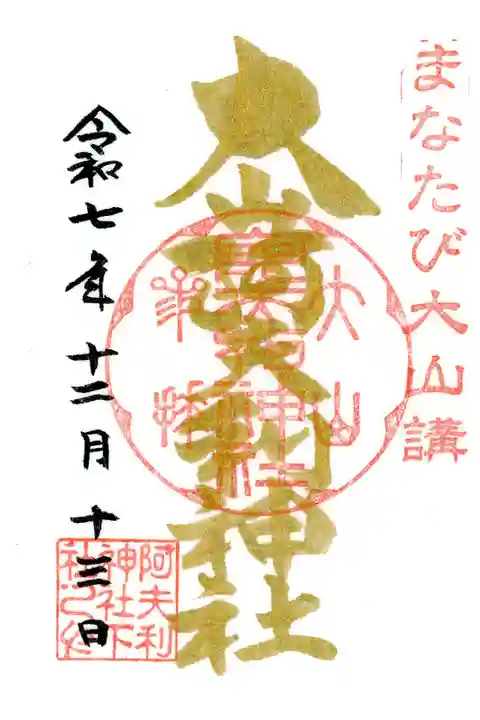 まなたび大山講
大山阿夫利神社
令和七年十二月十三日
大山
阿夫利
神社下